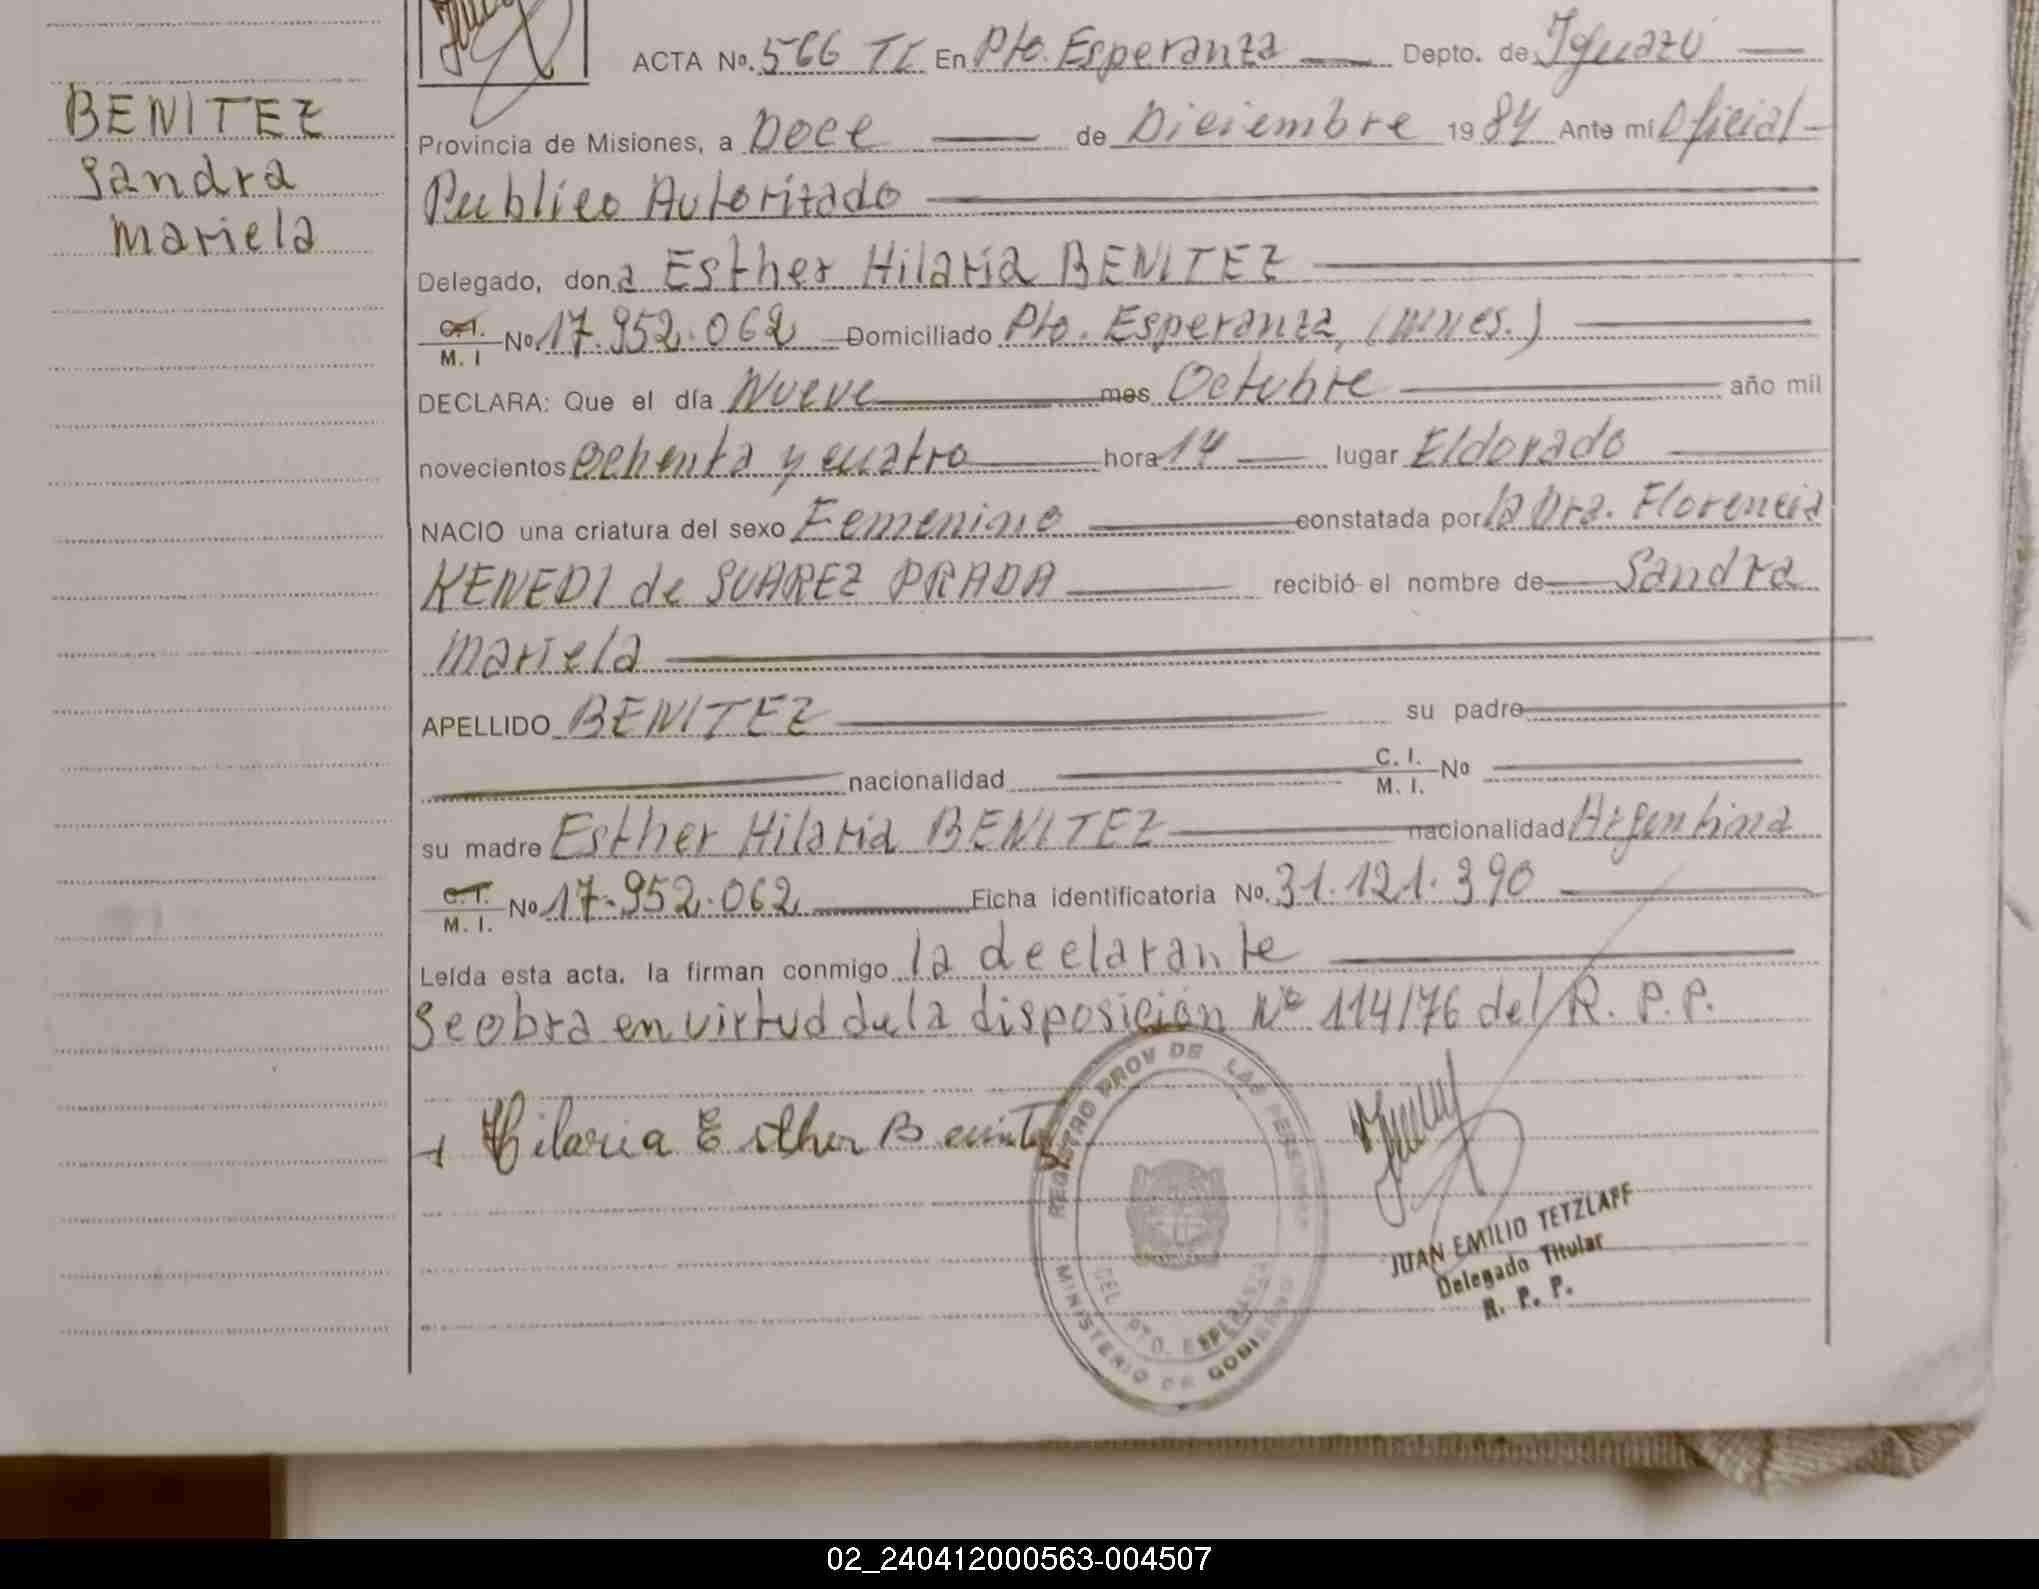 BENITEZ
Sandra
Mariela
ACTA No. 566 TI En Pto. Esperanza Depto. de Iguazú
Provincia de Misiones, a Doce de Diciembre 1984 Ante mí Oficial
Publico Autorizado
Delegado, don a Esther Hilaria BENITEZ
C.I. M. I No 17.952.062 Domiciliado Pto. Esperanza, (Mnes.)
DECLARA: Que el día Nueve mes Octubre año mil
novecientos ochenta y cuatro hora 14 lugar Eldorado
NACIO una criatura del sexo Femenino constatada por la Dra. Florencia
KENEDI de SUAREZ PRADA recibió el nombre de Sandra
Mariela
APELLIDO BENITEZ su padre
nacionalidad C. I. M. I. No
su madre Esther Hilaria BENITEZ nacionalidad Argentina
C.I. M. I. No 17.952.062 Ficha identificatoria No. 31.121.390
Leída esta acta, la firman conmigo la declarante
Se obra en virtud de la disposición Nº 114/76 del R. P. P.
Hilaria Esther Benitez
REGISTRO PROV DE LAS PERSONAS
MINISTERIO DE GOBIERNO
DEL. PTO. ESPERANZA
JUAN EMILIO TETZLAFF
Delegado Titular
R. P. P.
02_240412000563-004507